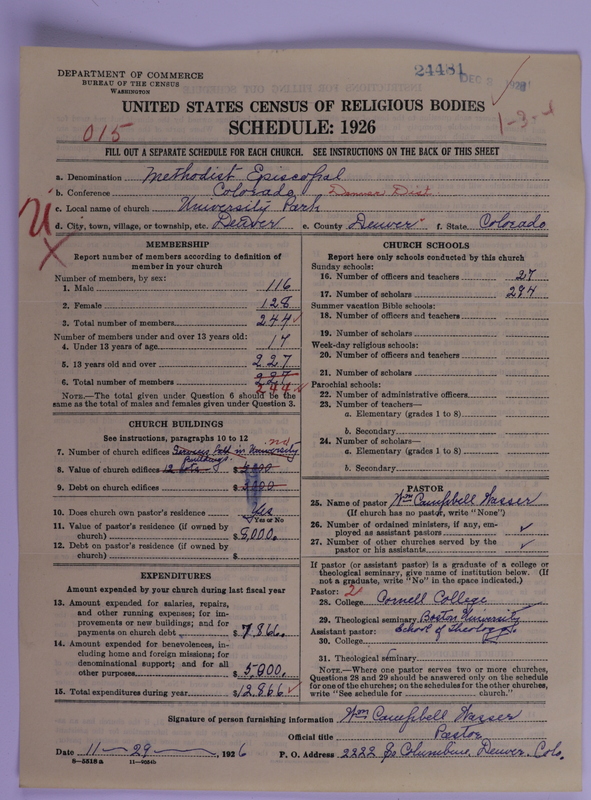 DEPARTMENT OF COMMERCE
BUREAU OF THE CENSUS
WASHINGTON
24481
DEC 1926
UNITED STATES CENSUS OF RELIGIOUS BODIES
SCHEDULE: 1926
015
1-3-
FILL OUT A SEPARATE SCHEDULE FOR EACH CHURCH. SEE INSTRUCTIONS ON THE BACK OF THIS SHEET
a. Denomination Methodist Episcopal
b. Conference Colorado Denver Dist.
c. Local name of church University Park
d. City, town, village, or township, etc. Denver e. County Denver f. State Colorado
MEMBERSHIP
Report number of members according to definition of
member in your church
Number of members, by sex:
1. Male 116
2. Female 128
3. Total number of members 244
Number of members under and over 13 years old:
4. Under 13 years of age 17
5. 13 years old and over 227
6. Total number of members 227 244
NOTE.—The total given under Question 6 should be the
same as the total of males and females given under Question 3.
CHURCH BUILDINGS
See instructions, paragraphs 10 to 12
7. Number of church edifices Services held in University
Buildings.
8. Value of church edifices 12 lots $
9. Debt on church edifices $
10. Does church own pastor's residence Yes
Yes or No
11. Value of pastor's residence (if owned by
church) $8,000.
12. Debt on pastor's residence (if owned by
church) $
EXPENDITURES
Amount expended by your church during last fiscal year
13. Amount expended for salaries, repairs,
and other running expenses; for im-
provements or new buildings; and for
payments on church debt $7,866.
14. Amount expended for benevolences, in-
cluding home and foreign missions; for
denominational support; and for all
other purposes $5,000.
15. Total expenditures during year $12,866
CHURCH SCHOOLS
Report here only schools conducted by this church
Sunday schools:
16. Number of officers and teachers 27
17. Number of scholars 294
Summer vacation Bible schools:
18. Number of officers and teachers
19. Number of scholars
Week-day religious schools:
20. Number of officers and teachers
21. Number of scholars
Parochial schools:
22. Number of administrative officers
23. Number of teachers—
a. Elementary (grades 1 to 8)
b. Secondary
24. Number of scholars—
a. Elementary (grades 1 to 8)
b. Secondary
PASTOR
25. Name of pastor Wm Campbell Wasser
(If church has no pastor, write "None")
26. Number of ordained ministers, if any, em-
ployed as assistant pastors
27. Number of other churches served by the
pastor or his assistants
If pastor (or assistant pastor) is a graduate of a college or
theological seminary, give name of institution below. (If
not a graduate, write "No" in the space indicated.)
Pastor: 2
28. College Cornell College
29. Theological seminary Boston University
Assistant pastor: School of Theology.
30. College
31. Theological seminary
NOTE.—Where one pastor serves two or more churches,
Questions 28 and 29 should be answered only on the schedule
for one of the churches; on the schedules for the other churches,
write "See schedule for church."
Signature of person furnishing information Wm Campbell Wasser
Official title Pastor
Date 11-29-, 1926 P. O. Address 2222 So Columbine, Denver, Colo.
8—5518 a